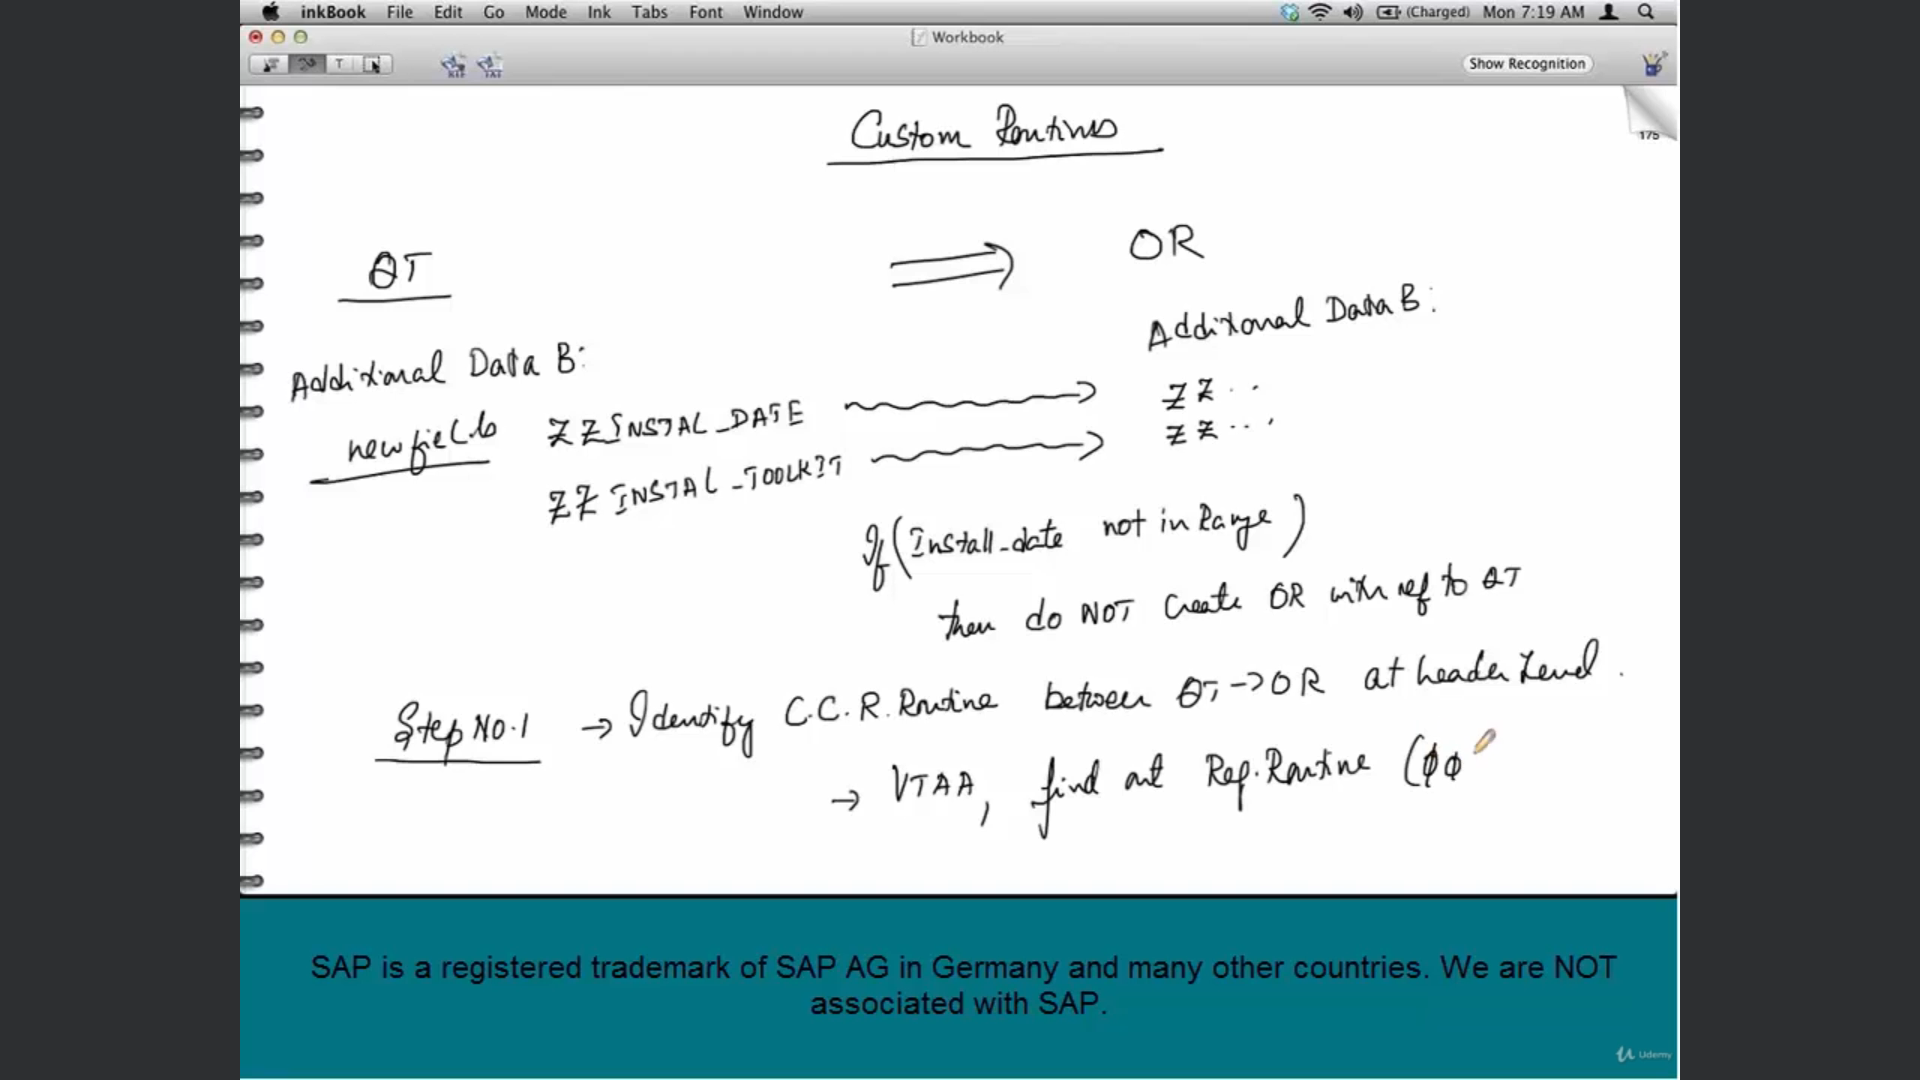 inkBook File Edit Go Mode Ink Tabs Font Window (Charged) Mon 7:19 AM
Workbook
T Show Recognition
175
Custom Routines
QT ⇒ OR
Additional Data B: Additional Data B:
new fields ZZINSTAL_DATE → ZZ..
ZZINSTAL_TOOLKIT → ZZ...
If (Install_date not in Range)
then do NOT create OR with ref to QT
Step No.1 → Identify C.C.R.Routine between QT->OR at header Level.
→ VTAA, find out Req.Routine (00
SAP is a registered trademark of SAP AG in Germany and many other countries. We are NOT
associated with SAP.
Udemy